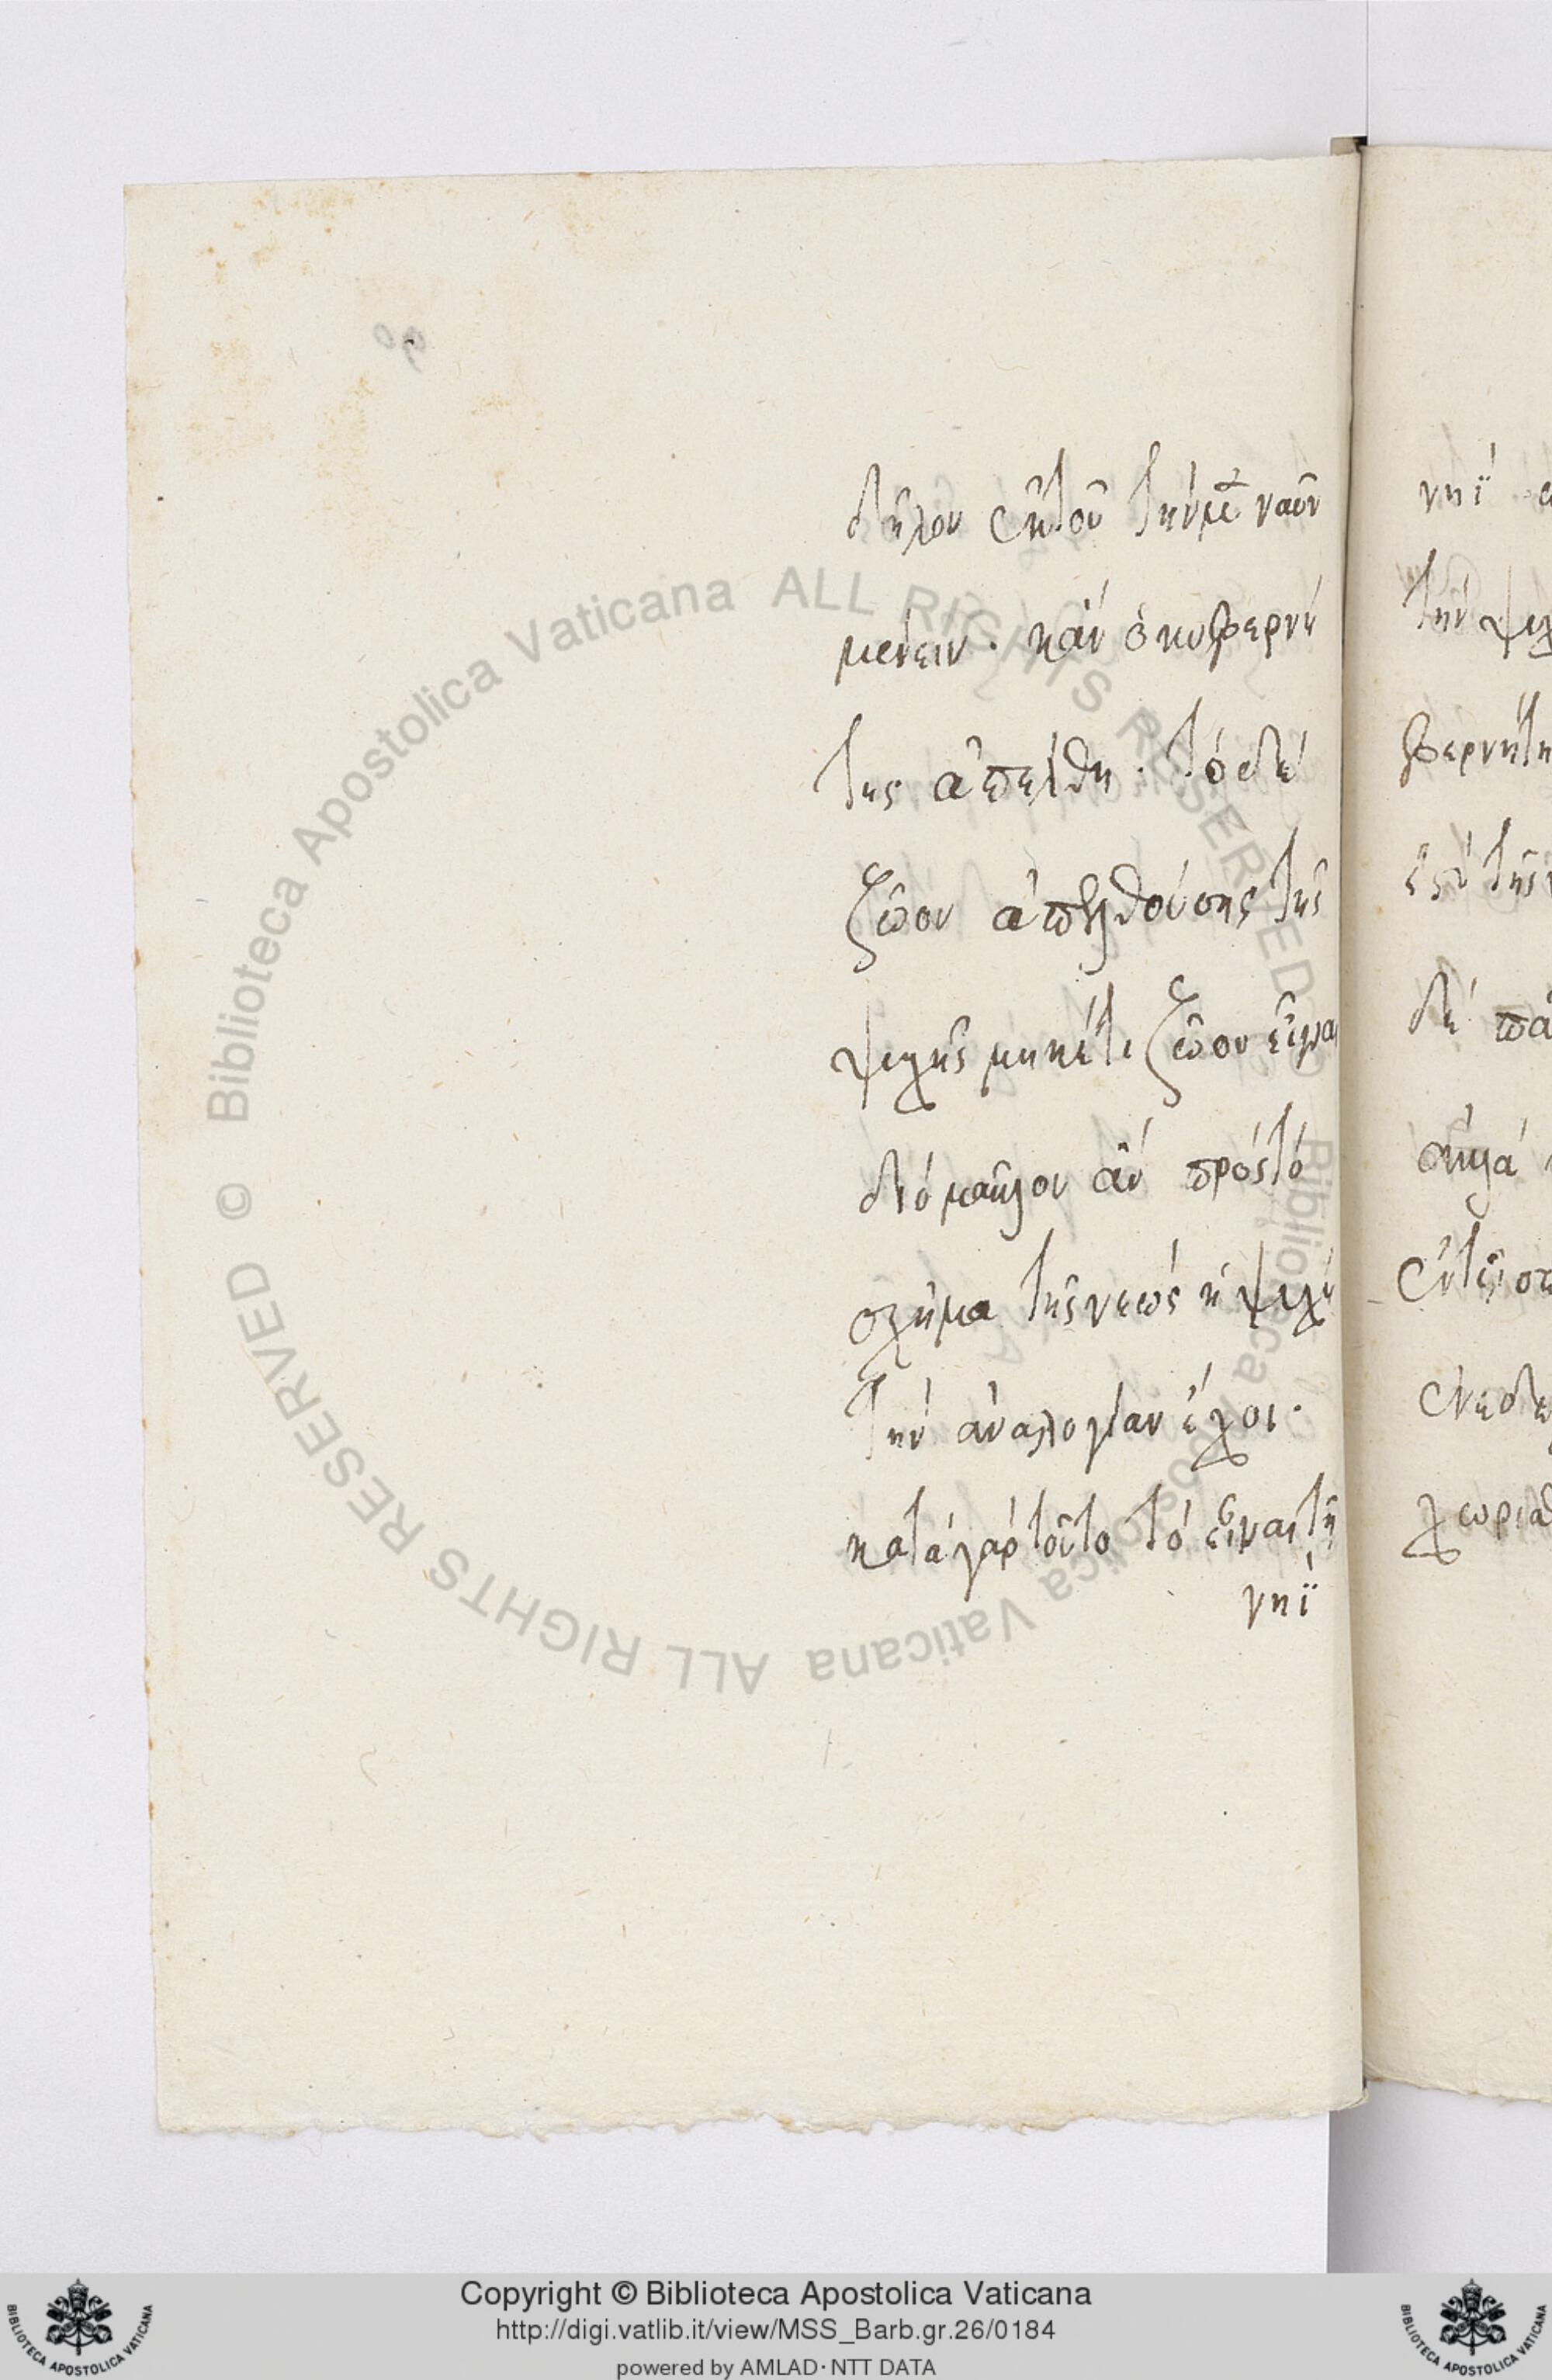 δῆλον ἐκτοῦ τὴνμὲν ναῦν
μένειν· κἂν ὁκυβερνή
της ἀπέλθη· τὸδὲ
ζῶον ἀπελθούσης τῆς
ψυχῆς μηκέτι ζῶον εἶναι
διὸ μᾶλλον ἂν πρὸςτὸ
σχῆμα τῆςνεὼς ἡ ψυχὴ
τὴν ἀναλογίαν ἔχοι·
κατὰγὰρτοῦτο τὸ εἶναιτῇ
νηῒ
νηῒ
τὴν ψυχ
βερνήτη
ἐπὶ τῆς
δὲ
ἀλλὰ
χωρισ
© Biblioteca Apostolica Vaticana ALL RIGHTS RESERVED
Biblioteca Apostolica Vaticana ALL RIGHTS RESERVED
Copyright © Biblioteca Apostolica Vaticana
http://digi.vatlib.it/view/MSS_Barb.gr.26/0184
powered by AMLAD·NTT DATA
BIBLIOTECA APOSTOLICA VATICANA
BIBLIOTECA APOSTOLICA VATICANA